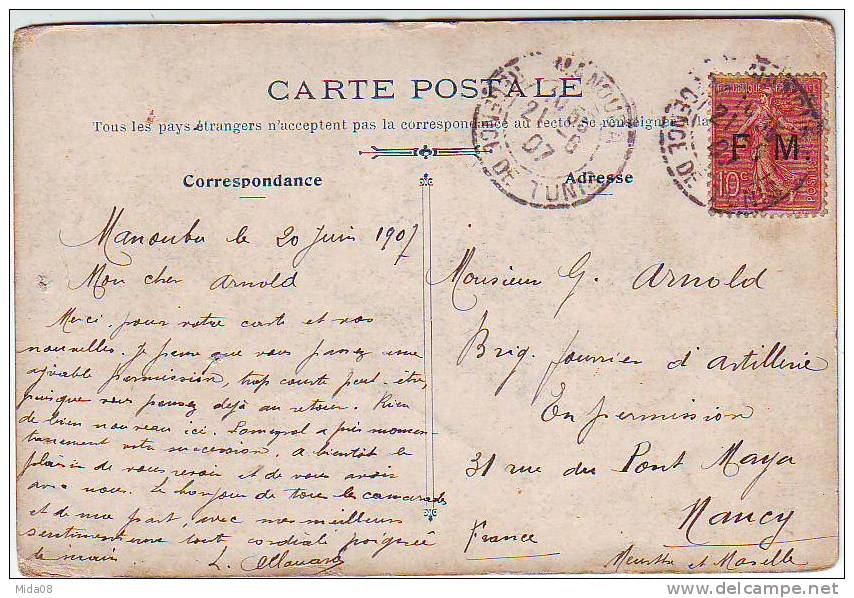 CARTE POSTALE
Tous les pays étrangers n'acceptent pas la correspondance au recto. Se renseigner à la
Correspondance
Manouba le 20 Juin 1907
Mon cher Arnold
Merci pour votre carte et vos
nouvelles. Je pense que vous passez une
agréable permission, trop courte peut-être,
puisque vous pensez déjà au retour. Rien
de bien nouveau ici. a pris momen-
tanément votre succession. A bientôt le
plaisir de vous revoir et de vous avoir
avec nous. Le bonjour de tous les camarades
et de ma part, avec mes meilleurs
sentiments une tout cordiale poignée
de main. L.
Adresse
Monsieur G. Arnold
Brig. fourrier d'artillerie
En permission
31 rue du Pont Maya
Nancy
France
Meurthe et Moselle
REPUBLIQUE FRANÇAISE
F. M.
10c
POSTES
MANOUBA
21
6
07
REGENCE DE TUNIS
Mida08
www.delcampe.net